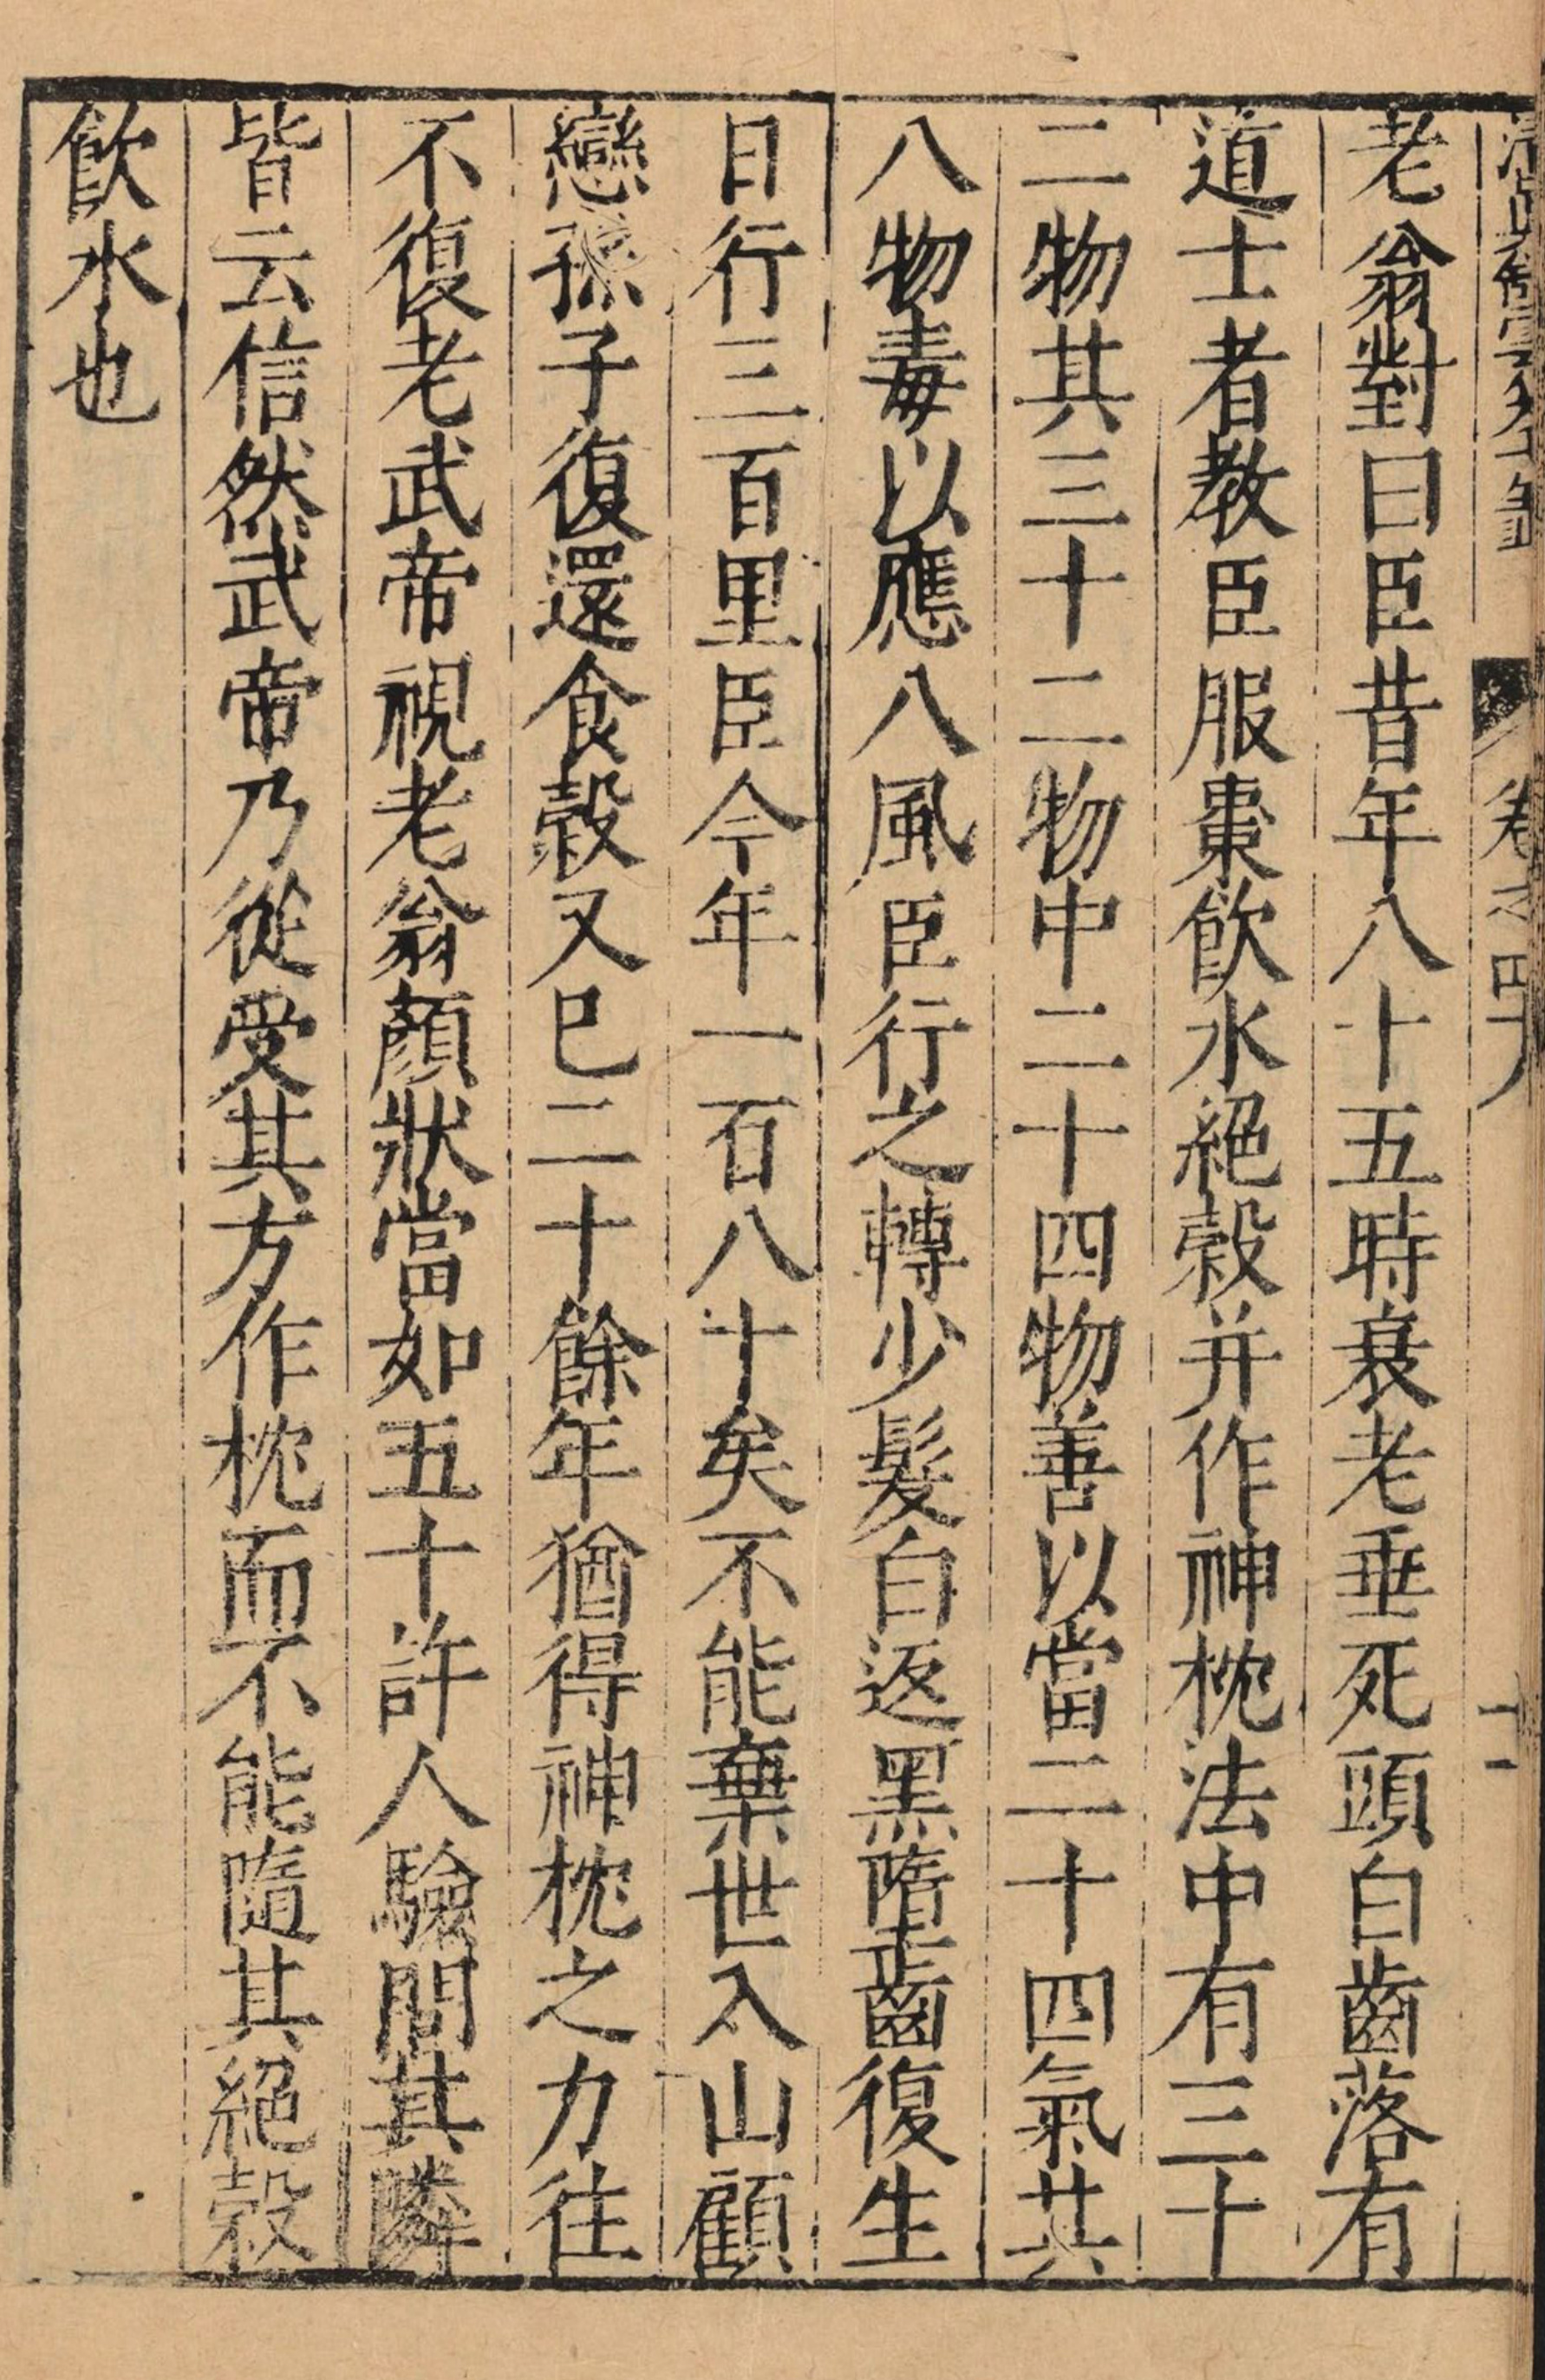 卷之四十八
十二
老翁對曰臣昔年八十五時衰老垂死頭白齒落有
道士者教臣服棗飲水絕穀并作神枕法中有三十
二物其三十二物中二十四物善以當二十四氣其
八物毒以應八風臣行之轉少髮白返黑隋齒復生
日行三百里臣今年一百八十矣不能棄世入山顧
戀孫子復還食穀又巳二十餘年猶得神枕之力往
不復老武帝視老翁顏狀當如五十許人驗問其隣
皆云信然武帝乃從受其方作枕而不能隨其絕穀
飲水也